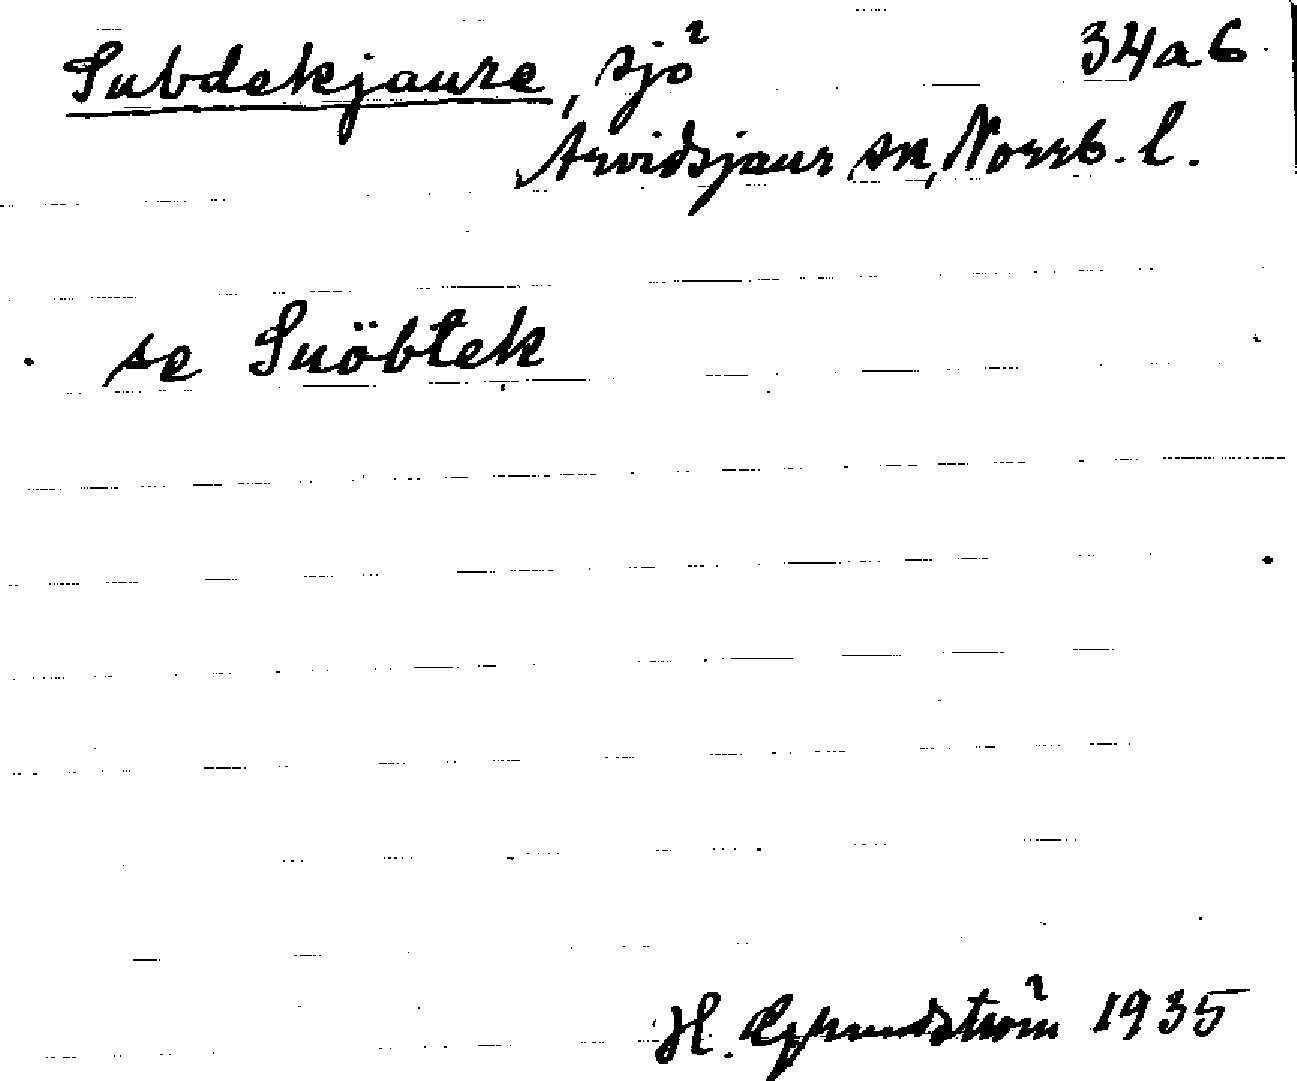 Subdekjaure, sjö 34a6
Arvidsjaur sn, Norrb. l.
se Suöbtek
H. Grundström 1935